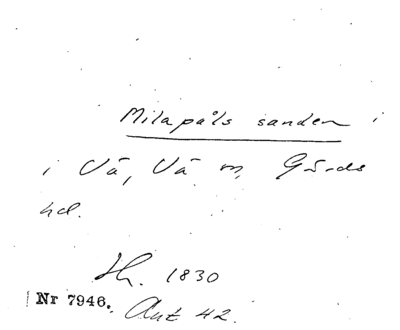 Milapåls sanden i
i Vä, Vä m, Gärds
hd.
Hs. 1830
Nr 7946. Ant 42.